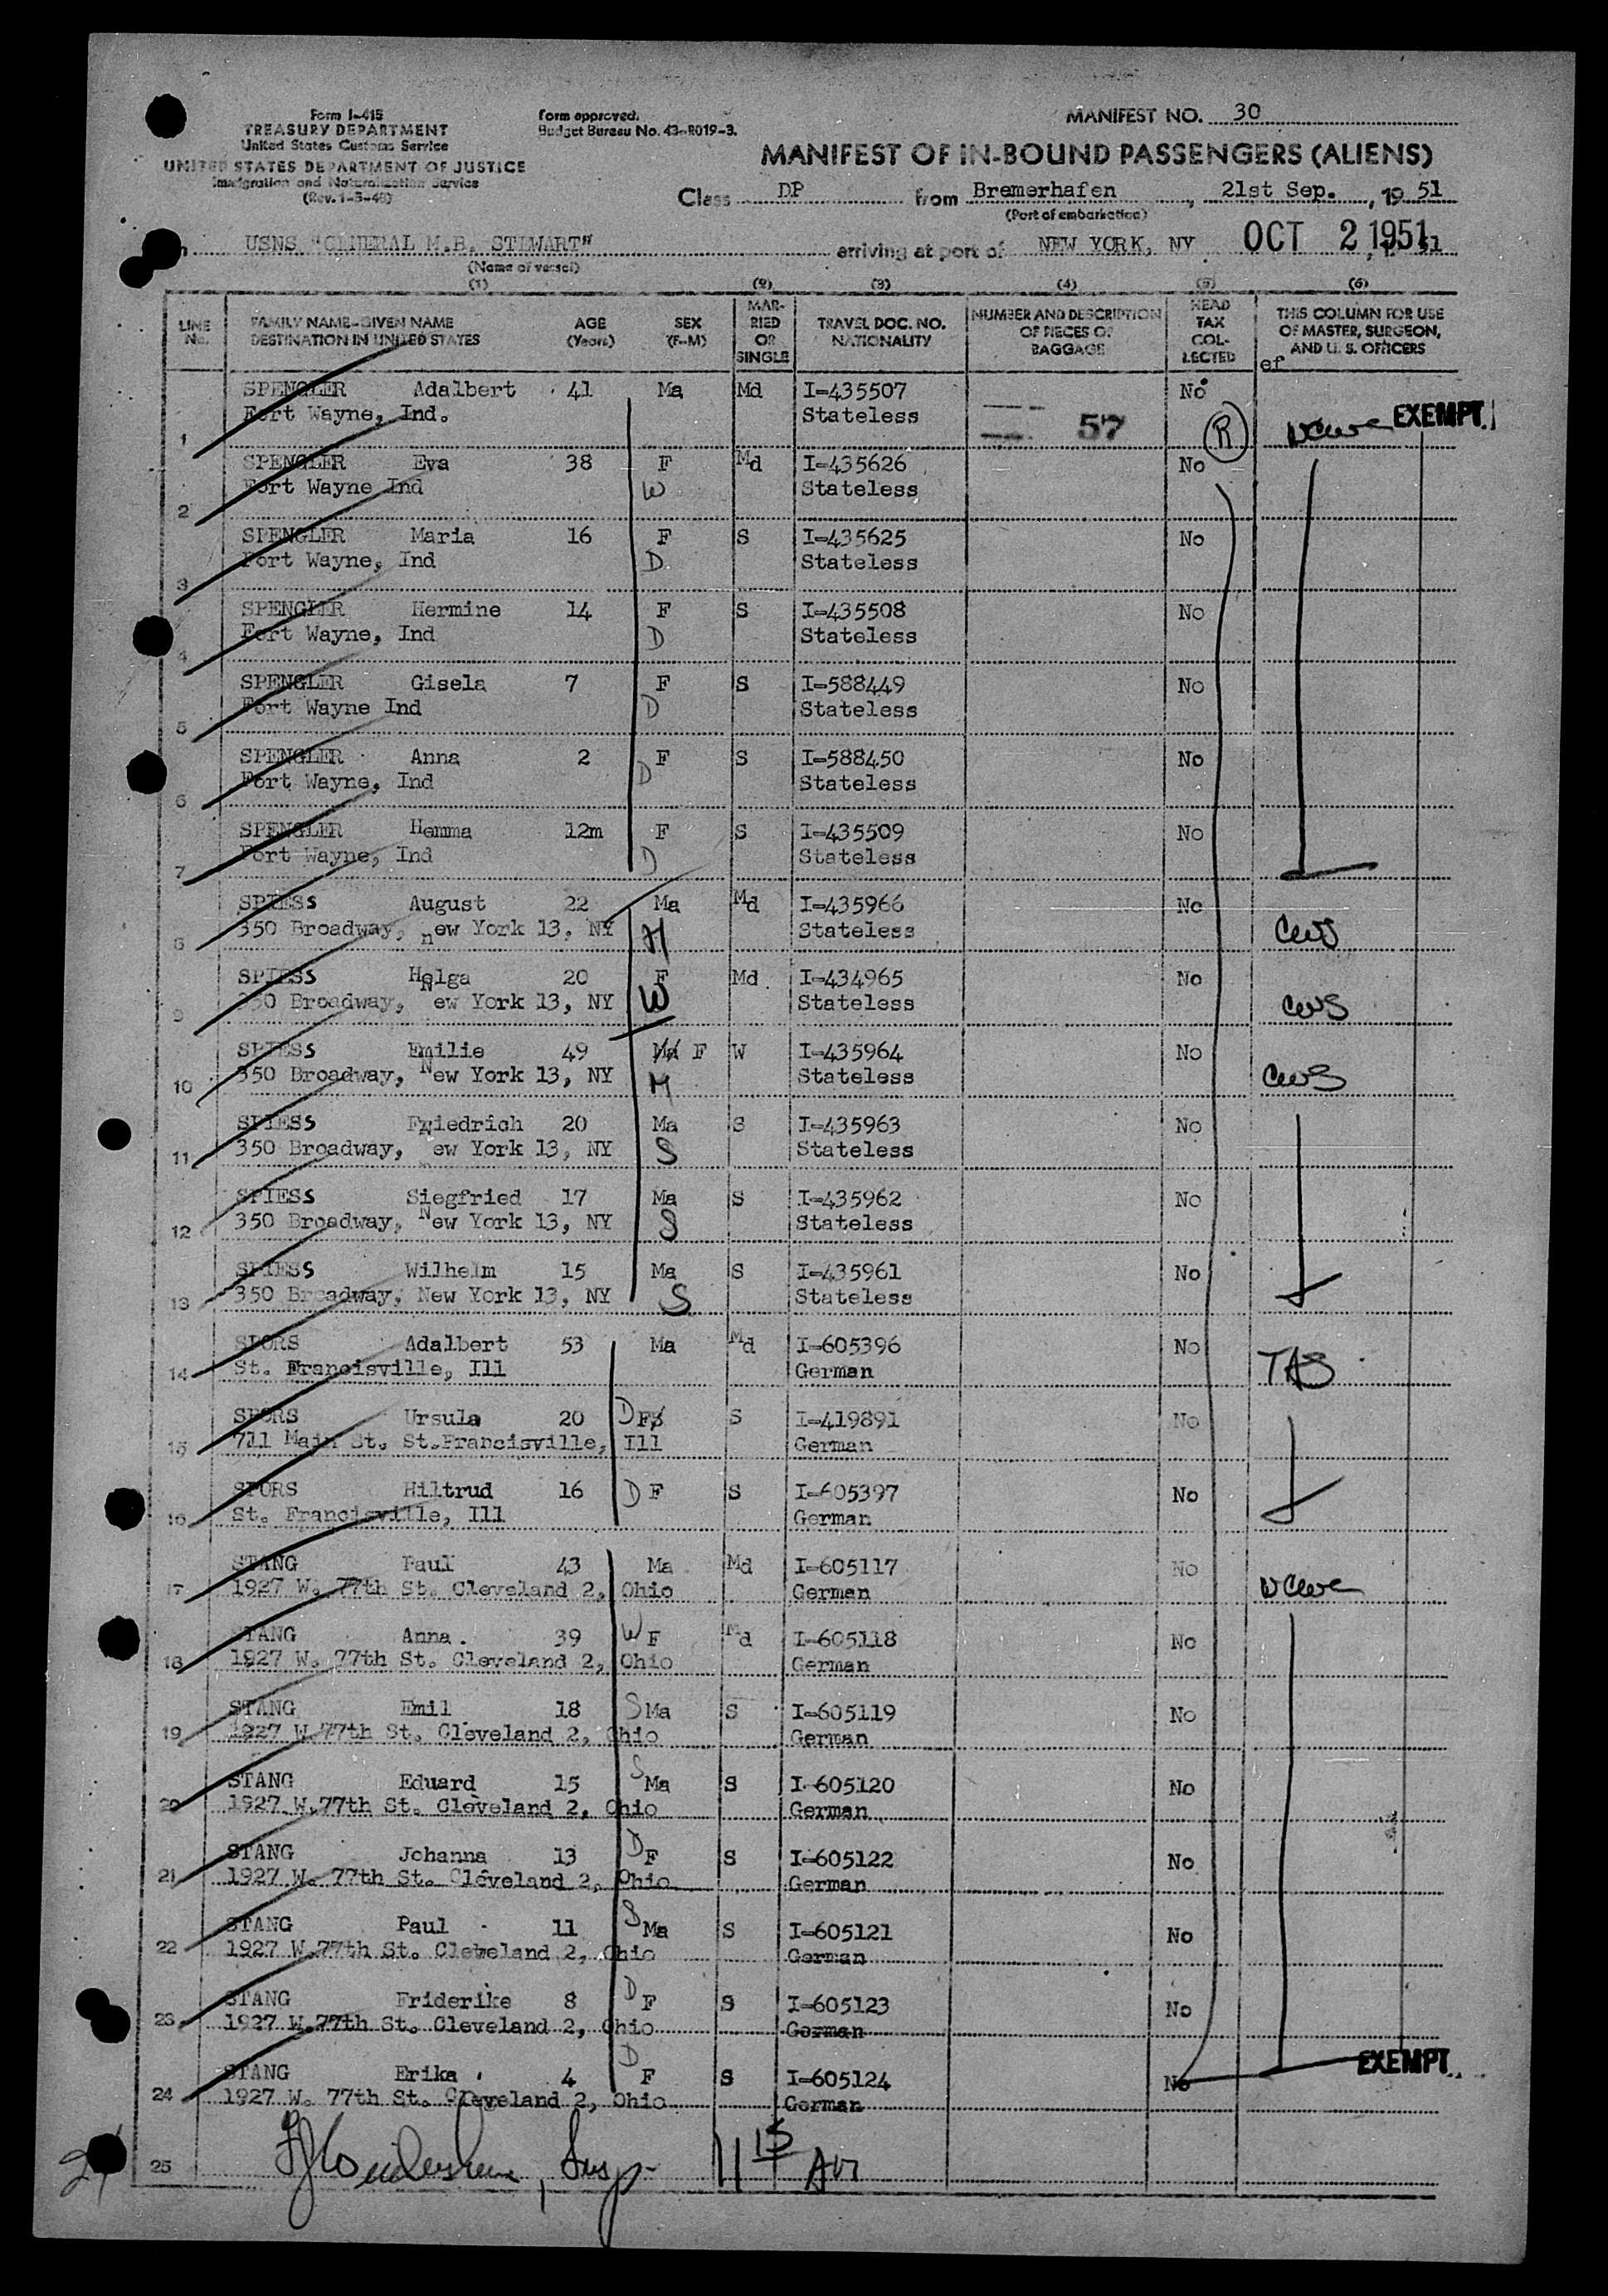 Form I-415
TREASURY DEPARTMENT
United States Customs Service
UNITED STATES DEPARTMENT OF JUSTICE
Immigration and Naturalization Service
(Rev. 1-3-48)
Form approved.
Budget Bureau No. 43-R019-3.
MANIFEST NO. 30
MANIFEST OF IN-BOUND PASSENGERS (ALIENS)
Class DP from Bremerhafen, 21st Sep., 19 51
(Port of embarkation)
USNS "GENERAL M.B. STEWART" arriving at port of NEW YORK, NY OCT 2 1951
(Name of vessel)
(1) (2) (3) (4) (5) (6)
LINE No. FAMILY NAME-GIVEN NAME DESTINATION IN UNITED STATES AGE (Years) SEX (F-M) MARRIED OR SINGLE TRAVEL DOC. NO. NATIONALITY NUMBER AND DESCRIPTION OF PIECES OF BAGGAGE HEAD TAX COLLECTED THIS COLUMN FOR USE OF MASTER, SURGEON, AND U. S. OFFICERS
ef
SPENGLER Adalbert 41 Ma Md I-435507 No
1 Fort Wayne, Ind. Stateless 57 R NCWC EXEMPT.
SPENGLER Eva 38 F Md I-435626 No
2 Fort Wayne Ind W Stateless
SPENGLER Maria 16 F S I-435625 No
3 Fort Wayne, Ind D Stateless
SPENGLER Hermine 14 F S I-435508 No
4 Fort Wayne, Ind D Stateless
SPENGLER Gisela 7 F S I-588449 No
5 Fort Wayne Ind D Stateless
SPENGLER Anna 2 F S I-588450 No
6 Fort Wayne, Ind D Stateless
SPENGLER Hemma 12m F S I-435509 No
7 Fort Wayne, Ind D Stateless
SPIESS August 22 Ma Md I-435966 No
8 350 Broadway, new York 13, NY H Stateless CWS
SPIESS Helga 20 F Md I-434965 No
9 350 Broadway, New York 13, NY W Stateless CWS
SPIESS Emilie 49 Ma F W I-435964 No
10 350 Broadway, New York 13, NY M Stateless CWS
SPIESS Friedrich 20 Ma S I-435963 No
11 350 Broadway, New York 13, NY S Stateless
SPIESS Siegfried 17 Ma S I-435962 No
12 350 Broadway, New York 13, NY S Stateless
SPIESS Wilhelm 15 Ma S I-435961 No
13 350 Broadway, New York 13, NY S Stateless
SPORS Adalbert 53 Ma Md I-605396 No
14 St. Francisville, Ill German TAS
SPORS Ursula 20 D F S I-419891 No
15 711 Main St. St.Francisville, Ill German
SPORS Hiltrud 16 D F S I-605397 No
16 St. Francisville, Ill German
STANG Paul 43 Ma Md I-605117 No
17 1927 W. 77th St. Cleveland 2, Ohio German NCWC
STANG Anna 39 W F Md I-605118 No
18 1927 W. 77th St. Cleveland 2, Ohio German
STANG Emil 18 S Ma S I-605119 No
19 1927 W.77th St. Cleveland 2, Ohio German
STANG Eduard 15 S Ma S I-605120 No
20 1927 W.77th St. Cleveland 2, Ohio German
STANG Johanna 13 D F S I-605122 No
21 1927 W. 77th St. Cleveland 2, Ohio German
STANG Paul 11 S Ma S I-605121 No
22 1927 W.77th St. Cleveland 2, Ohio German
STANG Friderike 8 D F S I-605123 No
23 1927 W.77th St. Cleveland 2, Ohio German
STANG Erika 4 D F S I-605124 No EXEMPT.
24 1927 W. 77th St. Cleveland 2, Ohio German
25 Insp 11 15 AM
24